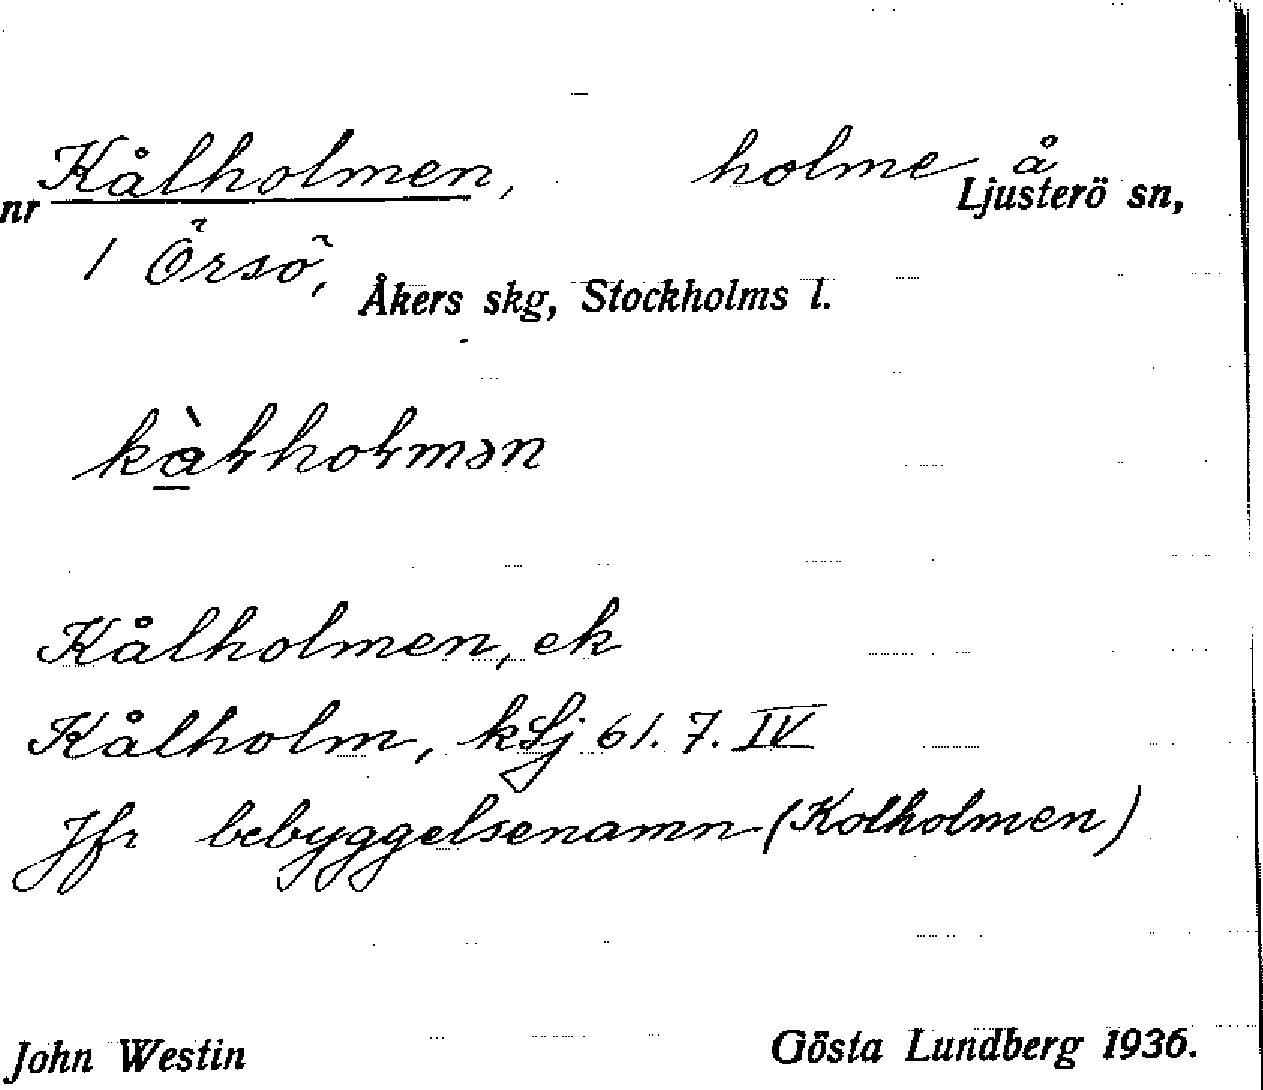 Kålholmen, holme å
nr Ljusterö sn,
1 Örsö,
Åkers skg, Stockholms l.
kàƚhoƚmən
Kålholmen, ek
Kålholm, kLj 61. 7. IV
Jfr bebyggelsenamn (Kolholmen)
John Westin Gösta Lundberg 1936.